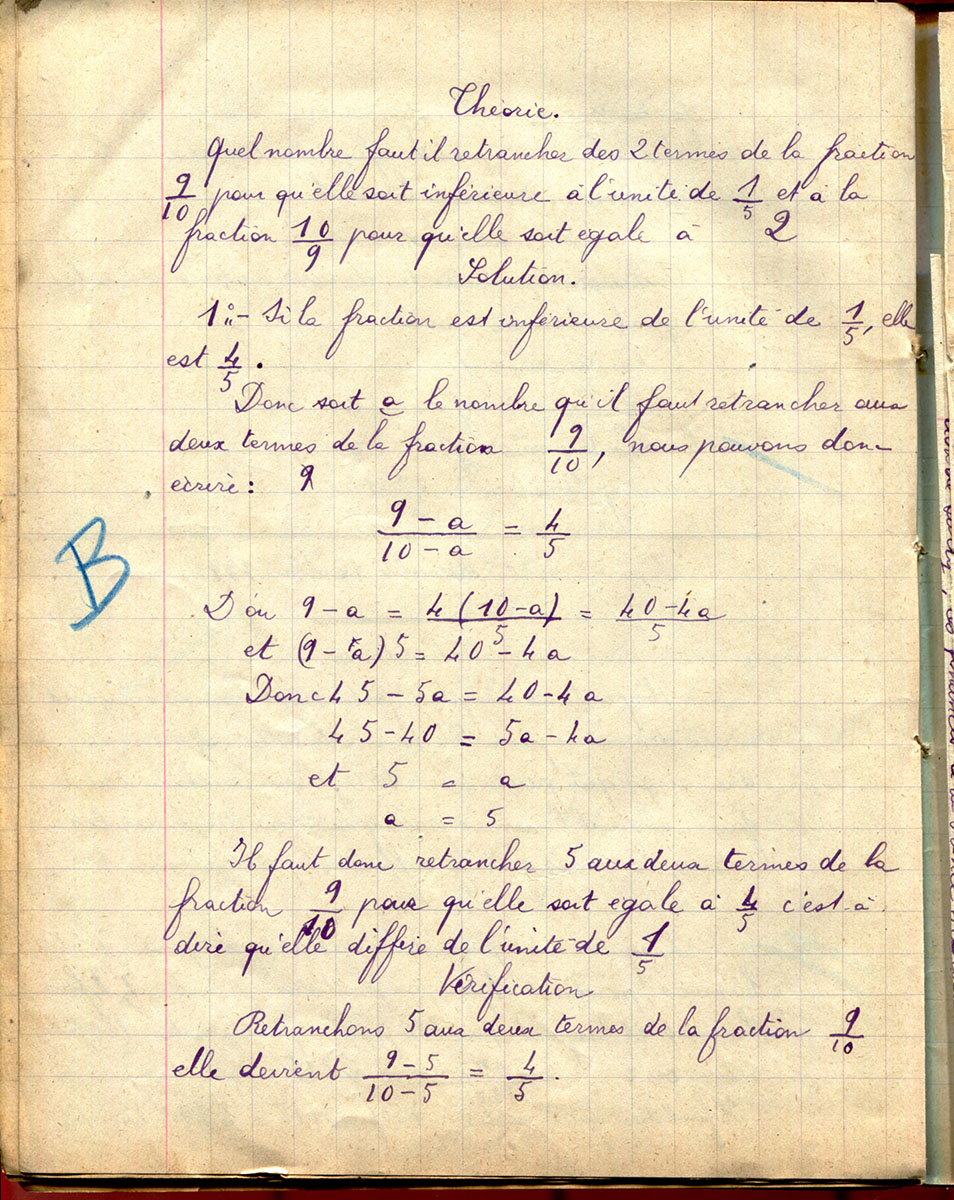 Théorie.
Quel nombre faut il retrancher des 2 termes de la fraction
9/10 pour qu'elle soit inférieure à l'unité de 1/5 et à la
fraction 10/9 pour qu'elle soit égale à 2
Solution.
1°:- Si la fraction est inférieure de l'unité de 1/5, elle
est 4/5.
Donc soit a le nombre qu'il faut retrancher aux
deux termes de la fraction 9/10, nous pouvons donc
écrire :
(9 - a)/(10 - a) = 4/5
D'où 9 - a = 4(10 - a)/5 = (40 - 4a)/5
et (9 - a) 5 = 40 - 4a
Donc 45 - 5a = 40 - 4a
45 - 40 = 5a - 4a
et 5 = a
a = 5
Il faut donc retrancher 5 aux deux termes de la
fraction 9/10 pour qu'elle soit égale à 4/5 c'est-à-
dire qu'elle diffère de l'unité de 1/5
Vérification
Retranchons 5 aux deux termes de la fraction 9/10
elle devient (9 - 5)/(10 - 5) = 4/5.
B